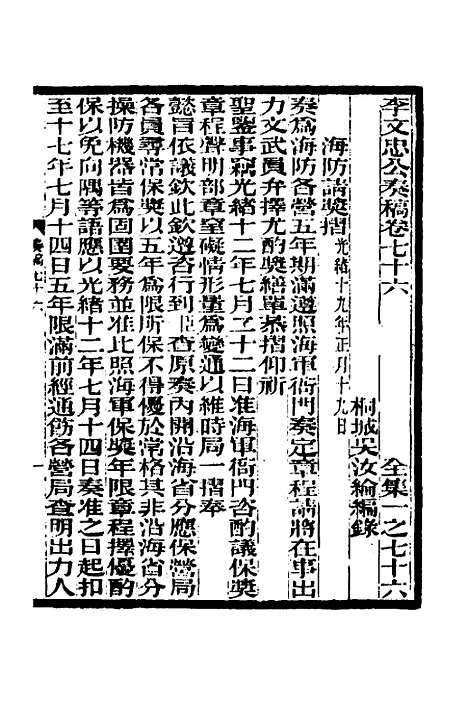 李文忠公奏稿卷七十六　全集一之七十六
桐城吳汝綸編錄
海防請獎摺光緒十九年正月十九日
奏爲海防各營五年期滿遵照海軍衙門奏定章程請將在事出
力文武員弁擇尤酌獎繕單恭摺仰祈
聖鑒事竊光緒十二年七月二十二日准海軍衙門咨酌議保獎
章程聲明部章窒礙情形量爲變通以維時局一摺奉
懿旨依議欽此欽遵咨行到臣查原奏內開沿海省分應保營局
各員尋常保獎以五年爲限所保不得優於常格其非沿海省分
操防機器皆爲固圉要務並准比照海軍保獎年限章程擇優酌
保以免向隅等語應以光緒十二年七月十四日奏准之日起扣
至十七年七月十四日五年限滿前經通飭各營局查明出力人
奏稿七十六　一